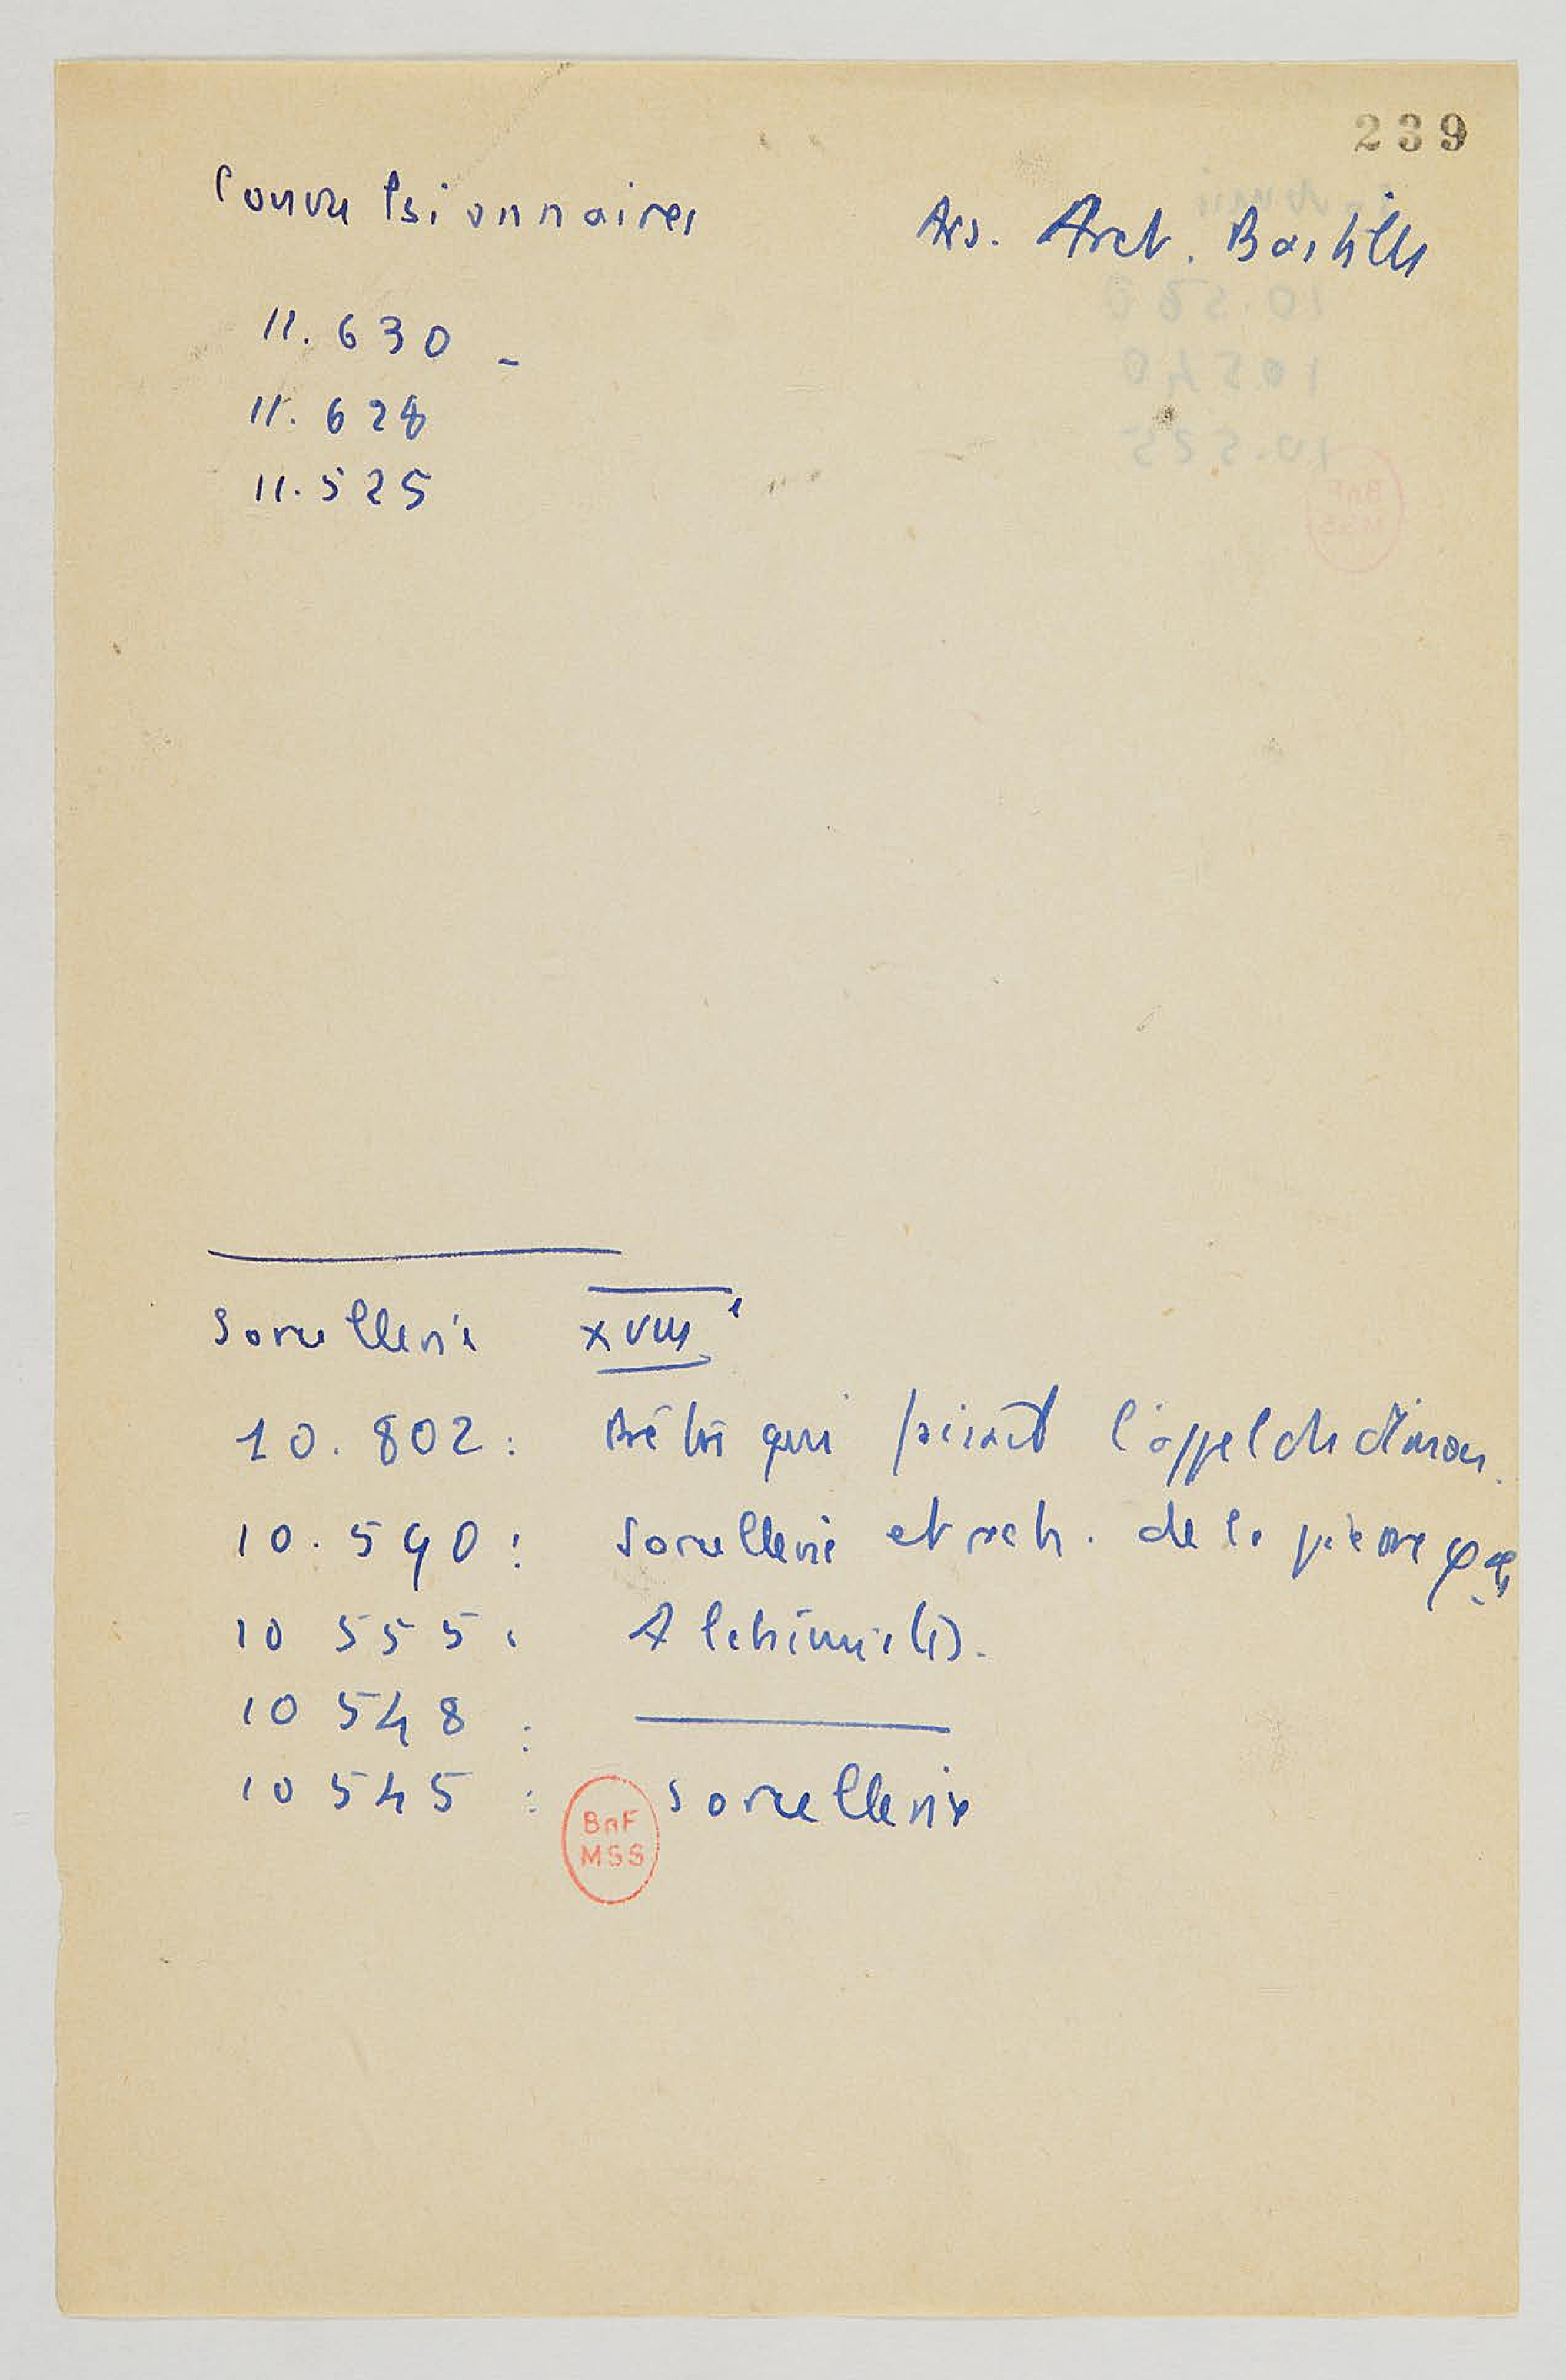 239
Convulsionnaires
Ars. Arch. Bastille
11.630 -
11.628
11.525
Sorcellerie XVIIIe
10.802: qui l'appel du démon.
10.590: Sorcellerie et rech. de la pierre φ
10 555: Alchimie
10 548:
10 545: Sorcellerie
BnF
MSS